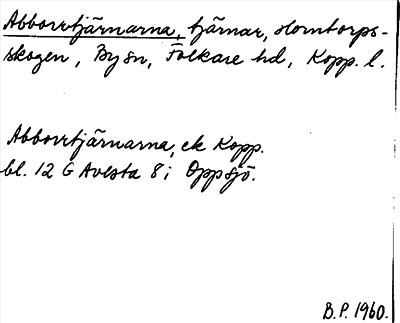 Abborrtjärnarna, tjärnar, Horntorps-
skogen, By sn, Folkare hd, Kopp. l.
Abborrtjärnarna, ek Kopp.
bl. 12 G Avesta 8 i Oppsjö.
B.P. 1960.